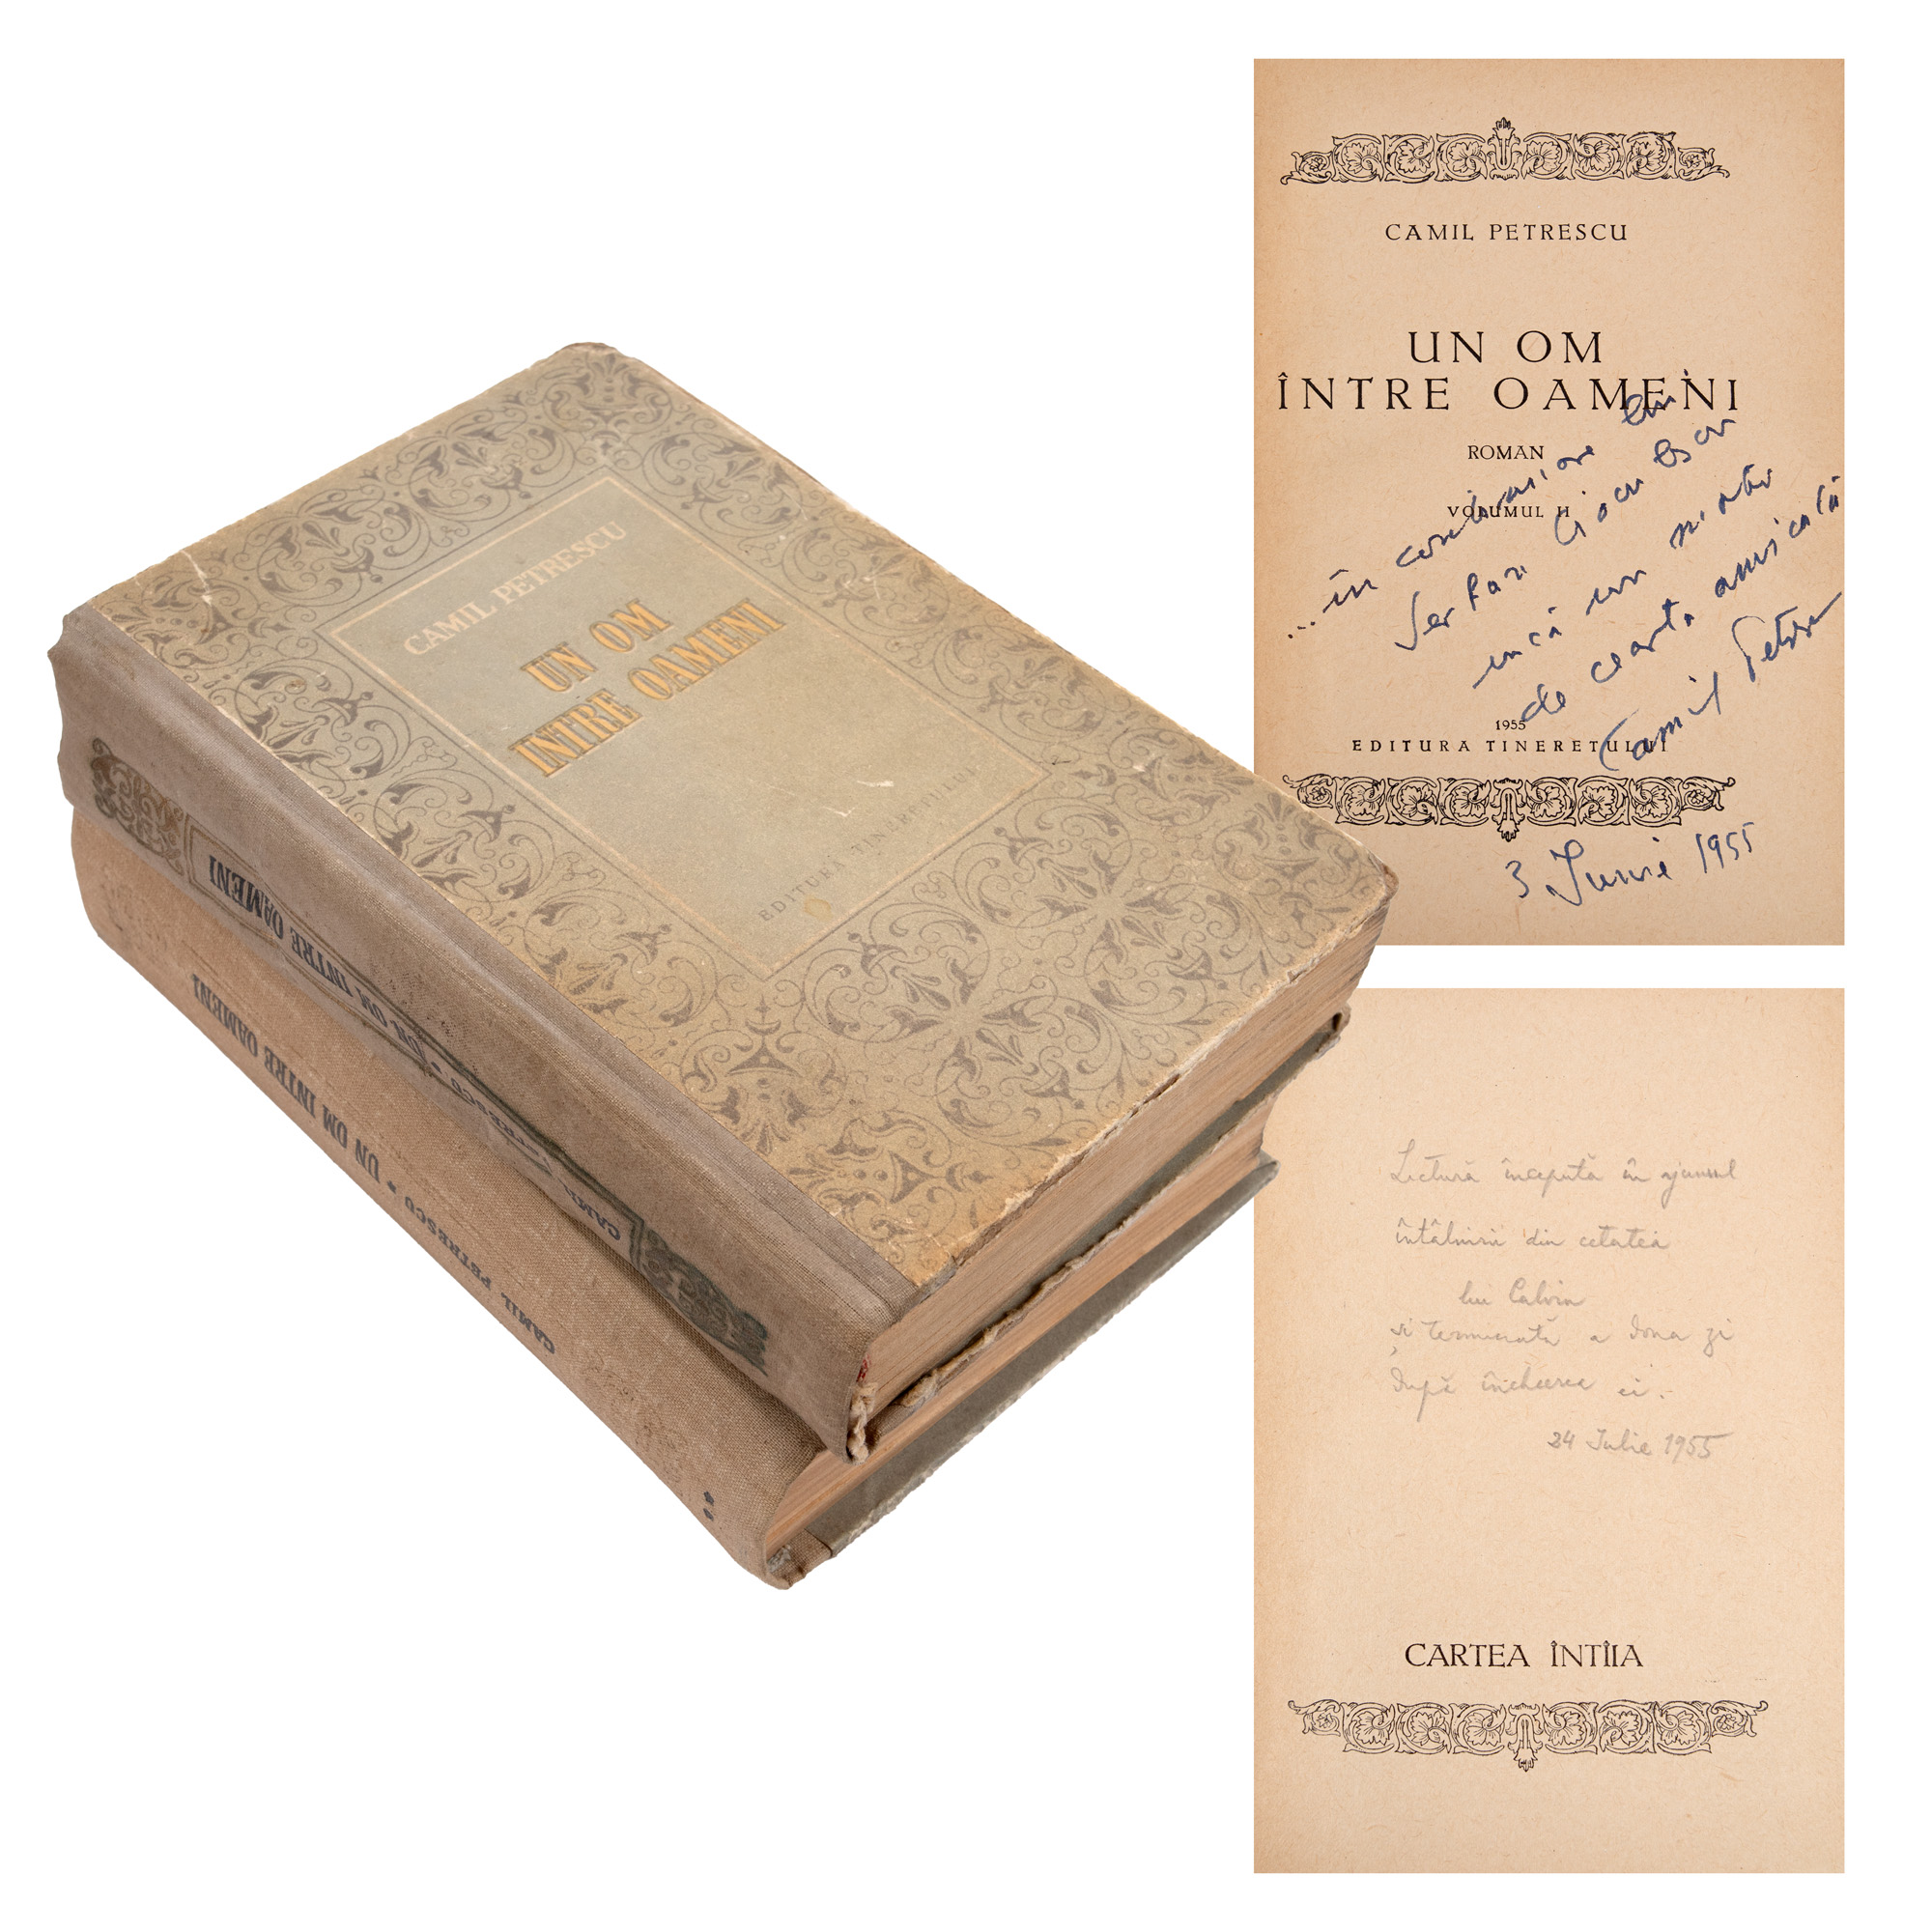 CAMIL PETRESCU
UN OM
INTRE OAMENI
EDITURA TINERETULUI
CAMIL PETRESCU • UN OM INTRE OAMENI
CAMIL PETRESCU • UN OM INTRE OAMENI
CAMIL PETRESCU
UN OM
ÎNTRE OAMENI
ROMAN
VOLUMUL II
...în continuare lui
Șerban Cioculescu
încă un motiv
de ceartă amicală
Camil Petrescu
1955
EDITURA TINERETULUI
3 Iunie 1955
Lectură începută în ajunul
întâlnirii din cetatea
lui Calvin
și terminată a doua zi
după încheierea ei.-
24 Iulie 1955
CARTEA ÎNTÎIA